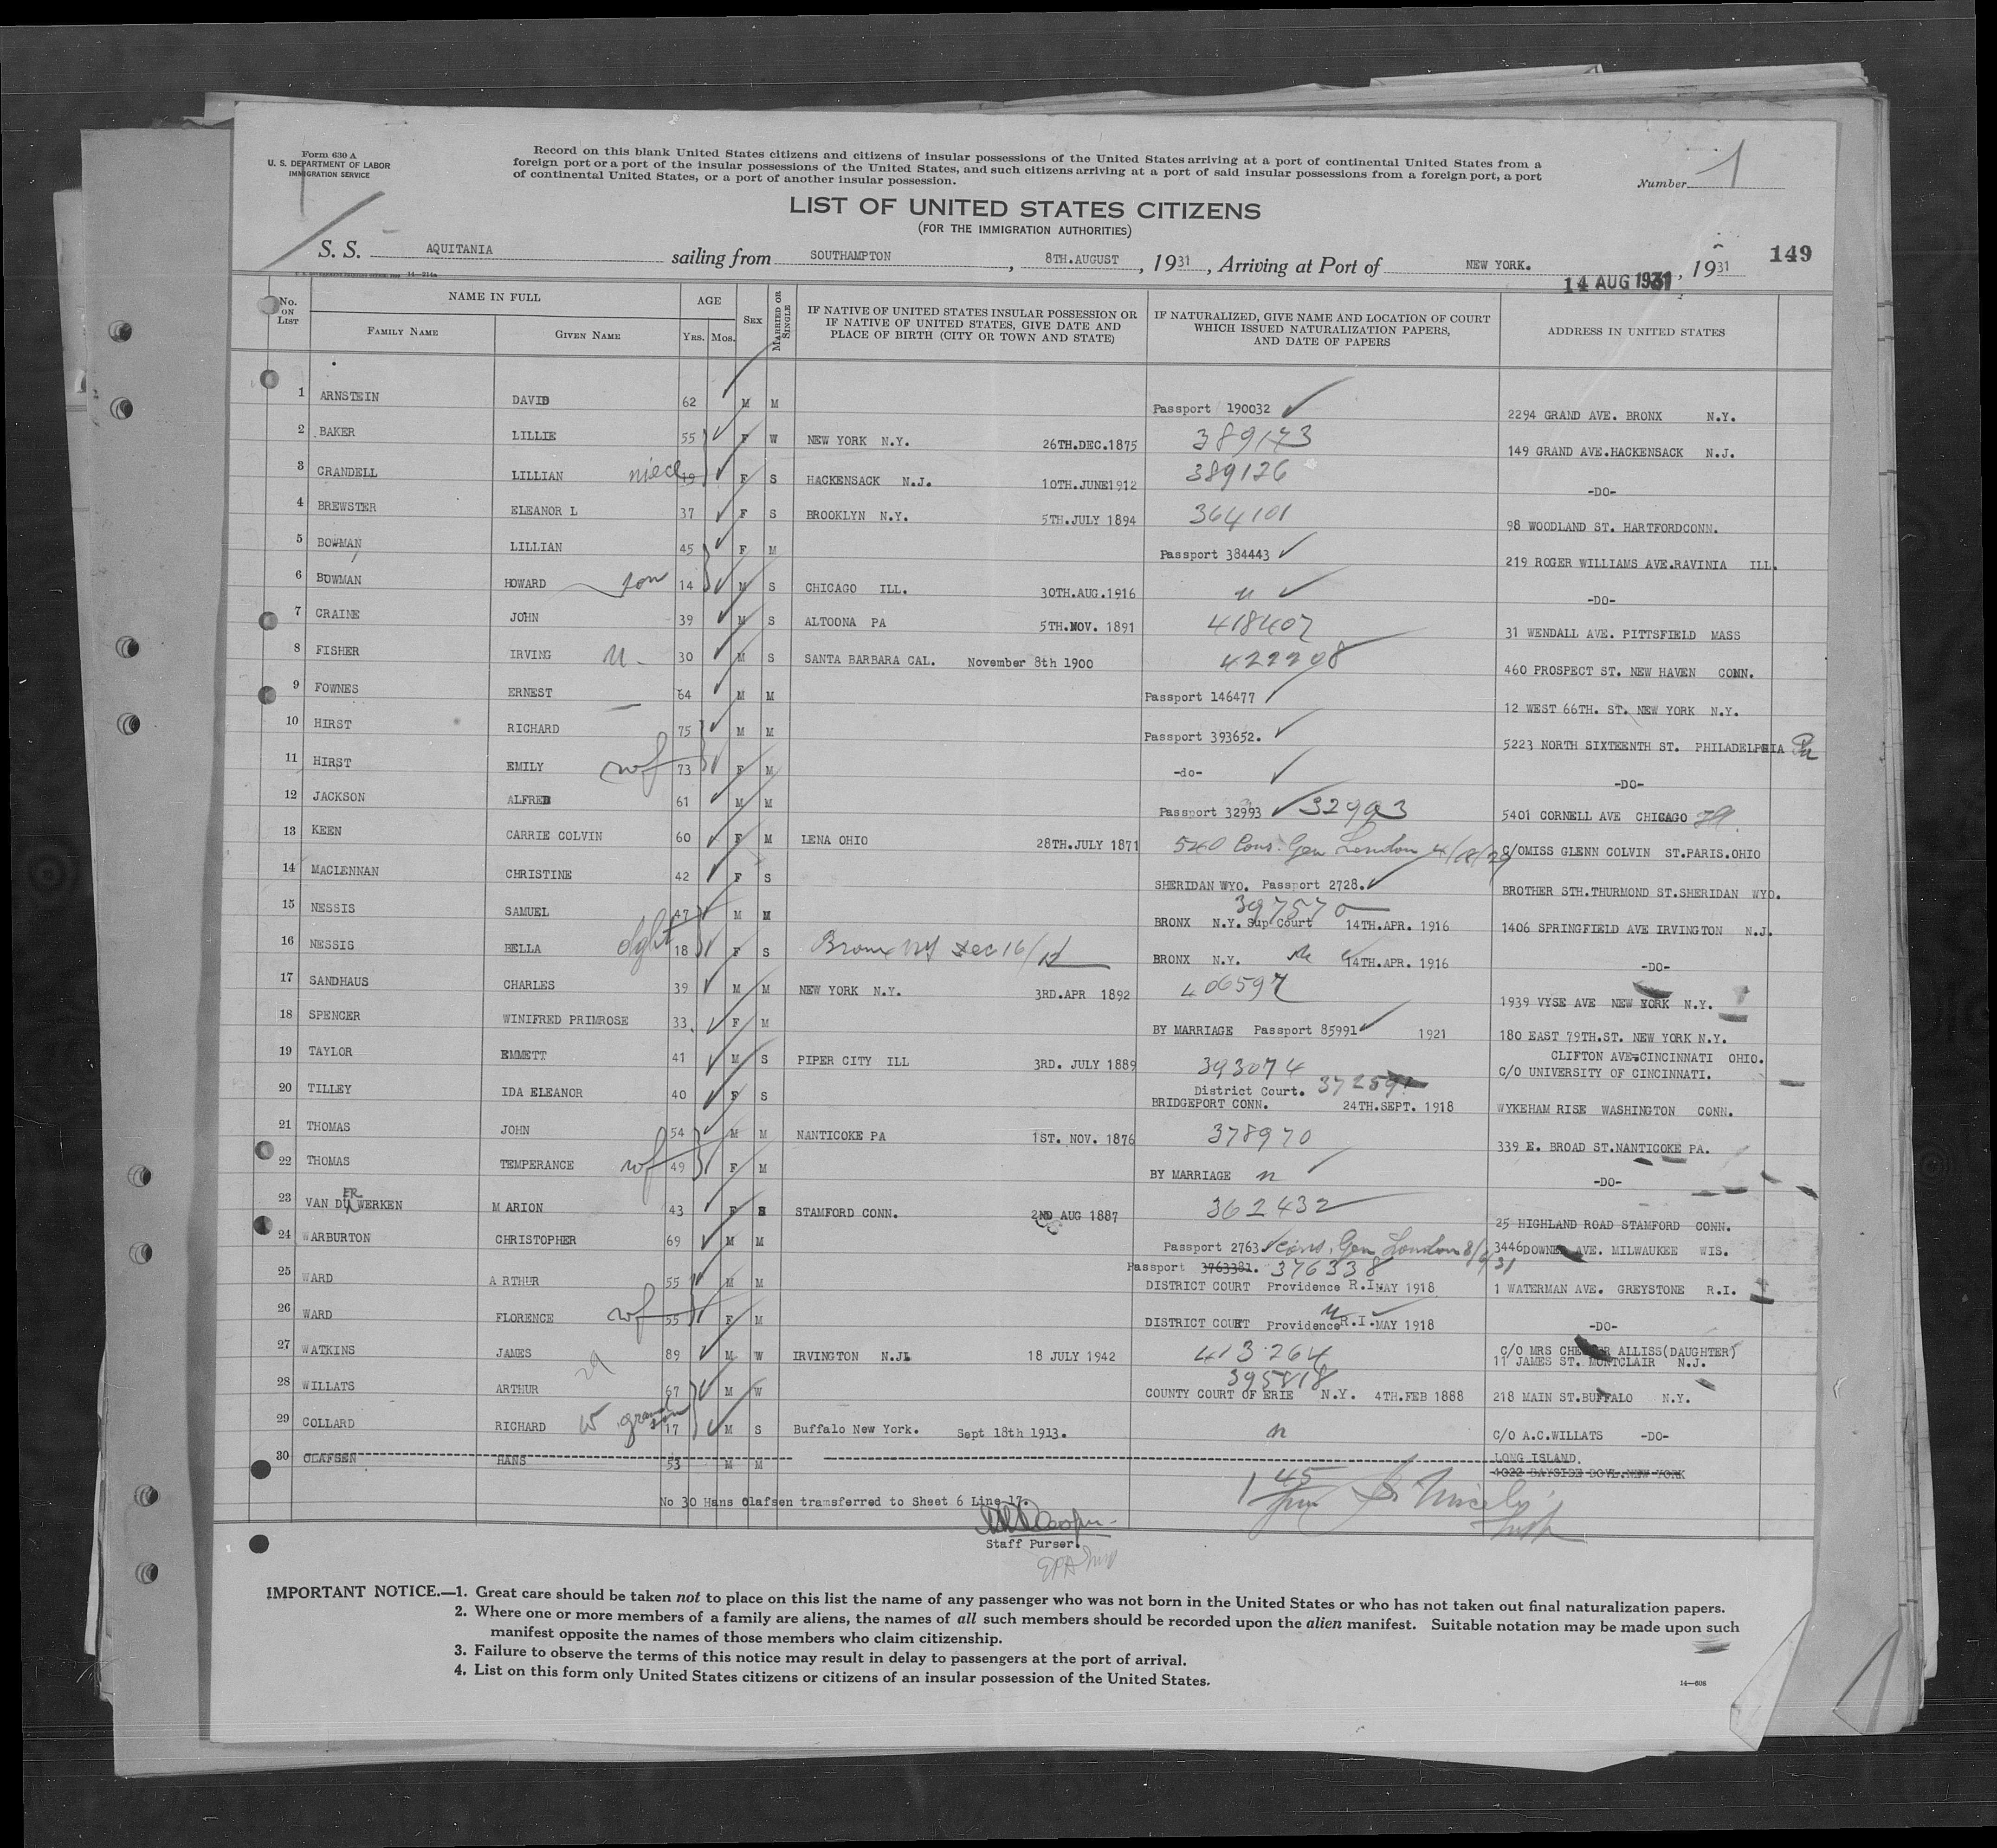 Form 630 A
U. S. DEPARTMENT OF LABOR
IMMIGRATION SERVICE
Record on this blank United States citizens and citizens of insular possessions of the United States arriving at a port of continental United States from a
foreign port or a port of the insular possessions of the United States, and such citizens arriving at a port of said insular possessions from a foreign port, a port
of continental United States, or a port of another insular possession.
Number 1
LIST OF UNITED STATES CITIZENS
(FOR THE IMMIGRATION AUTHORITIES)
S. S. AQUITANIA sailing from SOUTHAMPTON, 8TH.AUGUST, 1931, Arriving at Port of NEW YORK., 1931 149
14 AUG 1931
No. ON LIST NAME IN FULL FAMILY NAME GIVEN NAME AGE YRS. MOS. SEX MARRIED OR SINGLE IF NATIVE OF UNITED STATES INSULAR POSSESSION OR IF NATIVE OF UNITED STATES, GIVE DATE AND PLACE OF BIRTH (CITY OR TOWN AND STATE) IF NATURALIZED, GIVE NAME AND LOCATION OF COURT WHICH ISSUED NATURALIZATION PAPERS, AND DATE OF PAPERS ADDRESS IN UNITED STATES
1 ARNSTEIN DAVID 62 M M Passport 190032 2294 GRAND AVE. BRONX N.Y.
2 BAKER LILLIE 55 F W NEW YORK N.Y. 26TH.DEC.1875 389173 149 GRAND AVE.HACKENSACK N.J.
3 CRANDELL LILLIAN niece 19 F S HACKENSACK N.J. 10TH.JUNE1912 389126 -DO-
4 BREWSTER ELEANOR L 37 F S BROOKLYN N.Y. 5TH.JULY 1894 364101 98 WOODLAND ST. HARTFORDCONN.
5 BOWMAN LILLIAN 45 F M Passport 384443 219 ROGER WILLIAMS AVE.RAVINIA ILL.
6 BOWMAN HOWARD son 14 M S CHICAGO ILL. 30TH.AUG.1916 " -DO-
7 CRAINE JOHN 39 M S ALTOONA PA 5TH.NOV. 1891 418407 31 WENDALL AVE. PITTSFIELD MASS
8 FISHER IRVING 30 M S SANTA BARBARA CAL. November 8th 1900 422208 460 PROSPECT ST. NEW HAVEN CONN.
9 FOWNES ERNEST 64 M M Passport 146477 12 WEST 66TH. ST. NEW YORK N.Y.
10 HIRST RICHARD 75 M M Passport 393652. 5223 NORTH SIXTEENTH ST. PHILADELPHIA Pa
11 HIRST EMILY wf 73 F M -do- -DO-
12 JACKSON ALFRED 61 M M Passport 32993 32993 5401 CORNELL AVE CHICAGO Ill.
13 KEEN CARRIE COLVIN 60 F M LENA OHIO 28TH.JULY 1871 540 Cons. Gen London C/OMISS GLENN COLVIN ST.PARIS.OHIO
14 MACLENNAN CHRISTINE 42 F S SHERIDAN WYO. Passport 2728. BROTHER STH.THURMOND ST.SHERIDAN WYO.
15 NESSIS SAMUEL 47 M M 397570 BRONX N.Y. Sup Court 14TH.APR. 1916 1406 SPRINGFIELD AVE IRVINGTON N.J.
16 NESSIS BELLA dght 18 F S Bronx NY Dec 16/12 BRONX N.Y. 14TH.APR. 1916 -DO-
17 SANDHAUS CHARLES 39 M M NEW YORK N.Y. 3RD.APR 1892 406597 1939 VYSE AVE NEW YORK N.Y.
18 SPENCER WINIFRED PRIMROSE 33. F M BY MARRIAGE Passport 85991 1921 180 EAST 79TH.ST. NEW YORK N.Y.
19 TAYLOR EMMETT 41 M S PIPER CITY ILL 3RD. JULY 1889 393074 CLIFTON AVE-CINCINNATI OHIO.
C/O UNIVERSITY OF CINCINNATI.
20 TILLEY IDA ELEANOR 40 F S District Court. 37259
BRIDGEPORT CONN. 24TH.SEPT. 1918 WYKEHAM RISE WASHINGTON CONN.
21 THOMAS JOHN 54 M M NANTICOKE PA 1ST. NOV. 1876 378970 339 E. BROAD ST.NANTICOKE PA.
22 THOMAS TEMPERANCE wf 49 F M BY MARRIAGE " -DO-
23 VAN DER WERKEN MARION 43 F S STAMFORD CONN. 2ND AUG 1887 362432 25 HIGHLAND ROAD STAMFORD CONN.
24 WARBURTON CHRISTOPHER 69 M M Passport 2763 Cons. Gen London 8/6/31 3446DOWNER AVE. MILWAUKEE WIS.
25 WARD ARTHUR 55 M M Passport 3763381. 376338
DISTRICT COURT Providence R.I.MAY 1918 1 WATERMAN AVE. GREYSTONE R.I.
26 WARD FLORENCE wf 55 F M DISTRICT COURT Providence R.I. MAY 1918 -DO-
27 WATKINS JAMES 89 M W IRVINGTON N.J. 18 JULY 1942 413264 C/O MRS ALLISS(DAUGHTER)
11 JAMES ST. MONTCLAIR N.J.
28 WILLATS ARTHUR 67 M W 395818 COUNTY COURT OF ERIE N.Y. 4TH.FEB 1888 218 MAIN ST.BUFFALO N.Y.
29 COLLARD RICHARD grand son 17 M S Buffalo New York. Sept 18th 1913. " C/O A.C.WILLATS -DO-
30 OLAFSEN HANS 53 M M LONG ISLAND.
4022 BAYSIDE BOVL.NEW YORK
No 30 Hans Olafsen transferred to Sheet 6 Line 17.
Staff Purser.
IMPORTANT NOTICE.—1. Great care should be taken not to place on this list the name of any passenger who was not born in the United States or who has not taken out final naturalization papers.
2. Where one or more members of a family are aliens, the names of all such members should be recorded upon the alien manifest. Suitable notation may be made upon such
manifest opposite the names of those members who claim citizenship.
3. Failure to observe the terms of this notice may result in delay to passengers at the port of arrival.
4. List on this form only United States citizens or citizens of an insular possession of the United States.
14—608